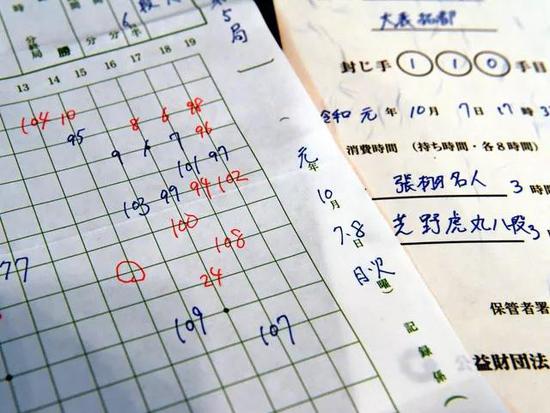 第5局
13 14 15 16 17 18 19
104 10 8 6 98
95 96
9 7
101 97
103 99 94 102
100
108
77
24
109 107
元年
10月
7.8日
月火曜)
記録係
封じ手 110手目
令和元年10月7日17時3
消費時間(持ち時間・各8時間)
張栩名人 3時間
芝野虎丸八段 3時
保管者署
公益財団法